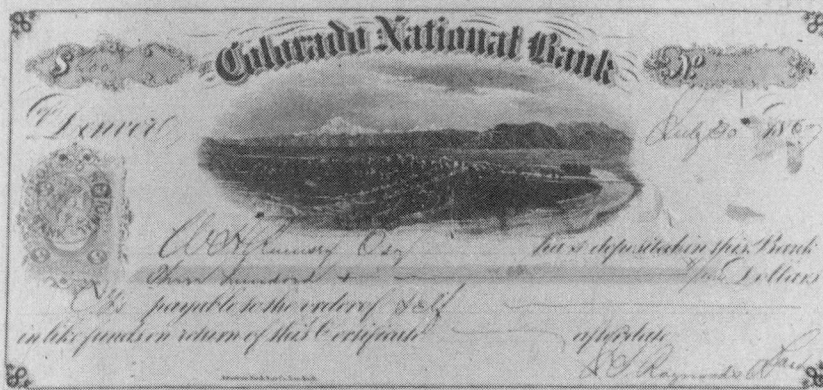 Colorado National Bank
$ 300 No
Denver July 30 1867
W H Ramsey Esq has deposited in this Bank
Three hundred Dollars
payable to the order of Self
in like funds on return of this Certificate after date
Raymond